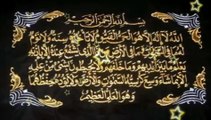 بسم الله الرحمن الرحيم
الله لا إله إلا هو الحي القيوم لا تأخذه سنة ولا نوم
له ما في السموات وما في الأرض من ذا الذي يشفع عنده إلا بإذنه
يعلم ما بين أيديهم وما خلفهم ولا يحيطون بشيء من علمه
إلا بما شاء وسع كرسيه السموات والأرض ولا يؤده حفظهما
وهو العلي العظيم